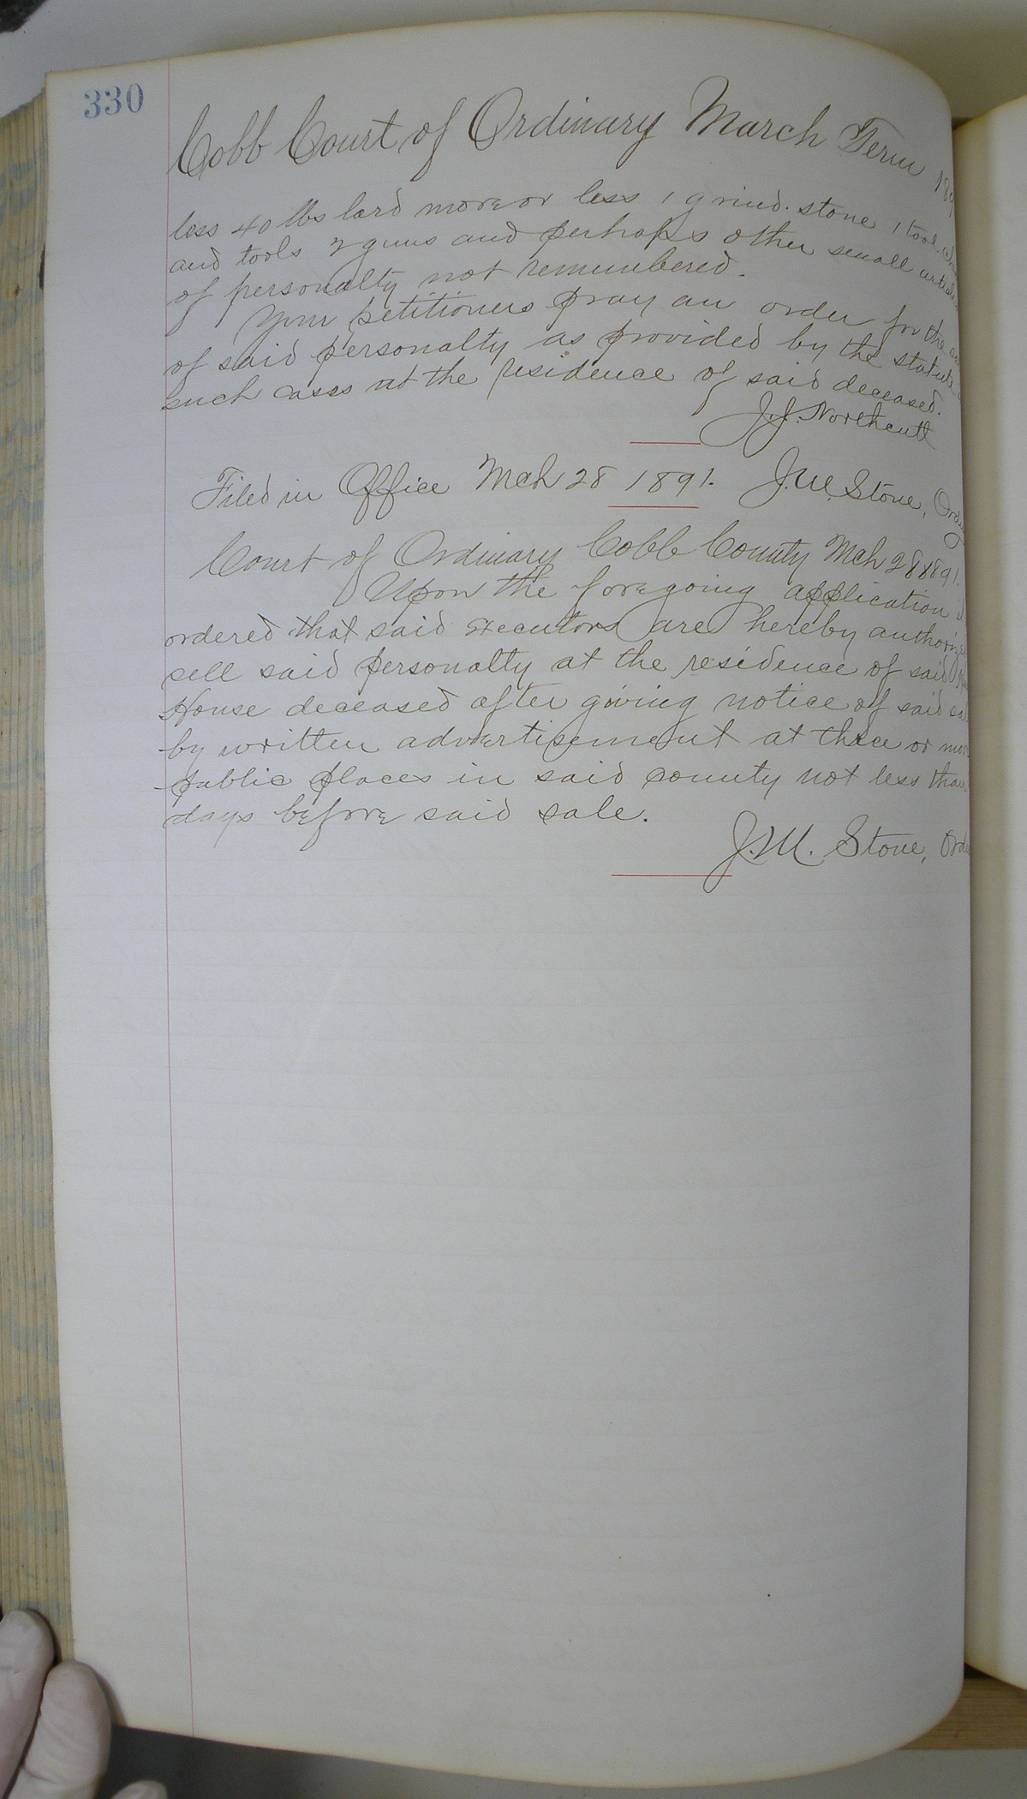 330
Cobb Court of Ordinary March Term 189
less 40 lbs lard more or less 1 grind. stone 1 tool
and tools 2 guns and perhaps other small
of personalty not remembered.
Your petitioners pray an order for the
of said personalty as provided by the statute
such cases at the residence of said deceased.
J.J. Northcutt
Filed in Office Mch 28 1891. J.M. Stone,
Court of Ordinary Cobb County Mch 28 1891.
Upon the foregoing application
ordered that said executors are hereby
sell said personalty at the residence of said
House deceased after giving notice of said
by written advertisement at three or
public places in said county not less than
days before said sale.
J.M. Stone,